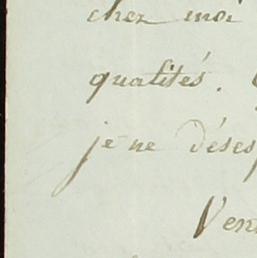 chez moi
qualités.
je ne déses
Ven